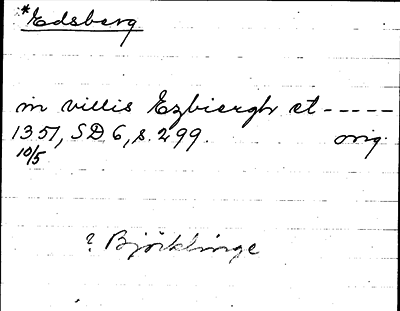 *Edsberg
in villis Ezbiergh et -----
1351, SD 6, s. 299. orig.
10/5
? Björklinge